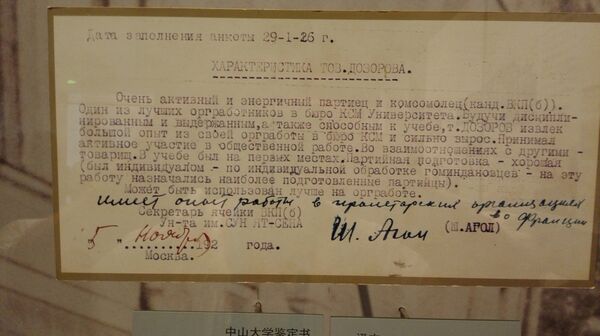 Дата заполнения анкеты 29-1-26 г.
ХАРАКТЕРИСТИКА ТОВ.ДОЗОРОВА.
Очень активный и энергичный партиец и комсомолец(канд.ВКП(б)).
Один из лучших оргработников в бюро КСМ Университета.Будучи дисципли-
нированным и выдержанным,а также способным к учебе,т.ДОЗОРОВ извлек
большой опыт из своей оргработы в бюро КСМ и сильно вырос.Принимал
активное участие в общественной работе.Во взаимоотношениях с другими -
товарищ.В учебе был на первых местах.Партийная подготовка - хорошая
(был индивидуалом - по индивидуальной обработке гоминдановцев - на эту
работу назначались наиболее подготовленные партийцы).
Может быть использован лучше на оргработе.
Имеет опыт работы в пролетарских организациях
во Франции
Секретарь ячейки ВКП(б)
Ун-та им.СУН ЯТ-СЕНА
Ш. Агол
(Ш.АГОЛ)
5 " ноября 192 года.
Москва.
中山大学鉴定书